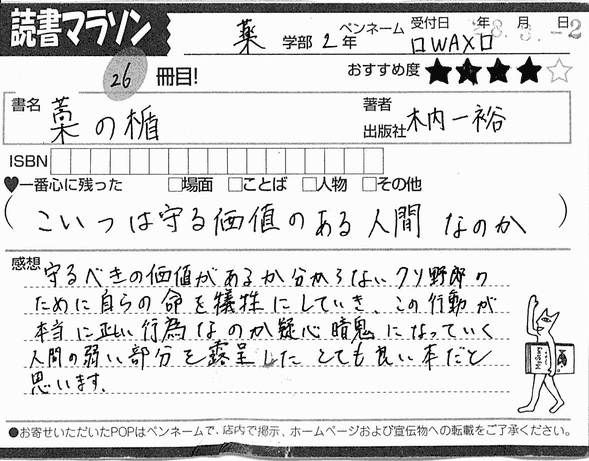 読書マラソン
薬 学部 2年 ペンネーム ロWAXロ 受付日 年 月 日
26 冊目! おすすめ度 ★★★★☆
書名 藁の楯 著者 出版社 木内一裕
ISBN
♥一番心に残った □場面 □ことば □人物 □その他
(こいつは守る価値のある人間なのか)
感想 守るべきの価値があるか分からないクソ野郎の
ために自らの命を犠牲にしていき、この行動が
本当に正しい行為なのか疑心暗鬼になっていく
人間の弱い部分を露呈したとても良い本だと
思います。
●お寄せいただいたPOPはペンネームで、店内で掲示、ホームページおよび宣伝物への転載をご了承ください。